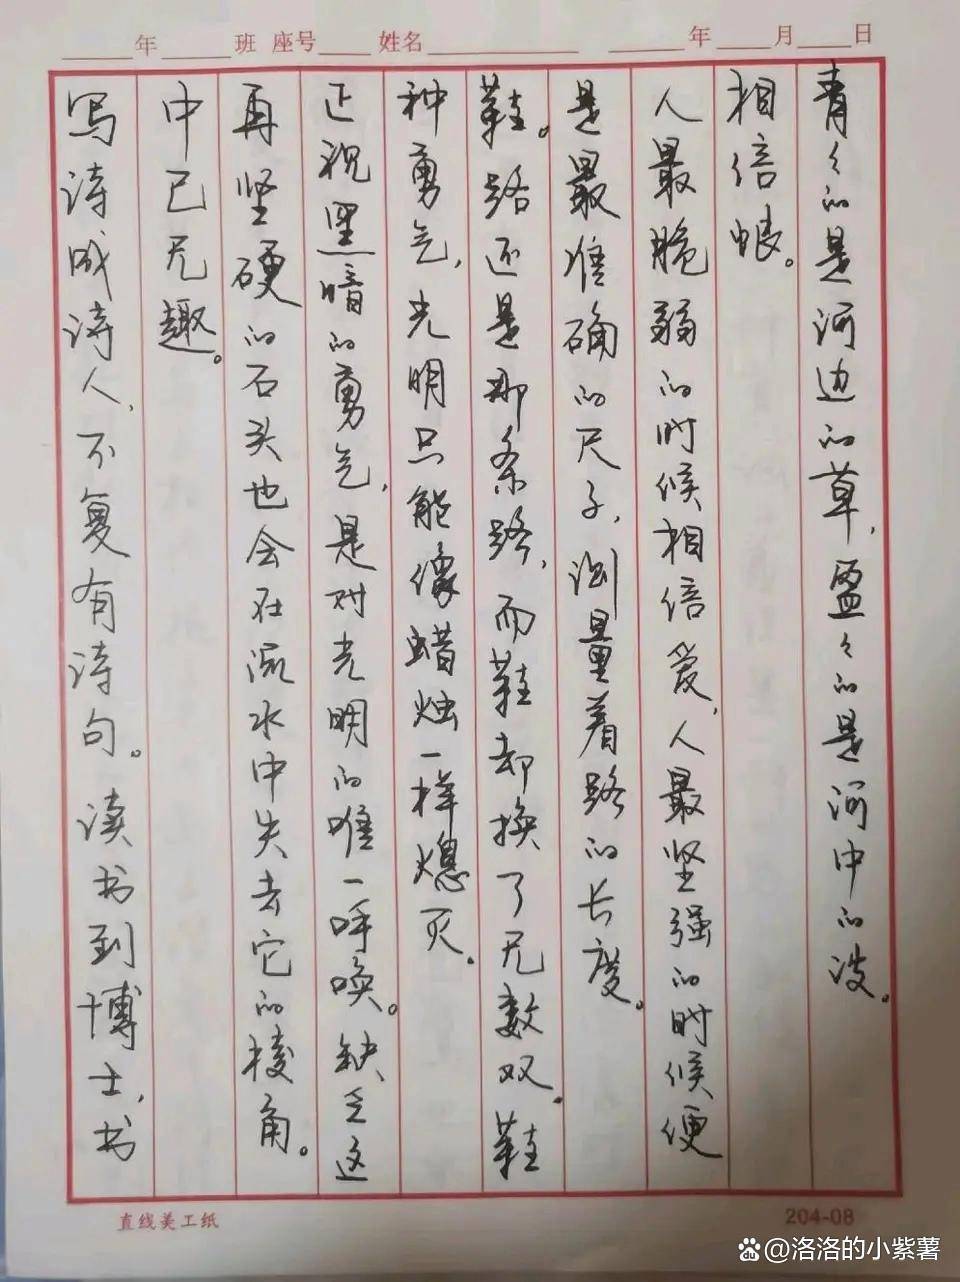 年 班 座号 姓名 年 月 日
写诗成诗人，不复有诗句。读书到博士，书
中已无趣。
再坚硬的石头也会在流水中失去它的棱角。
正视黑暗的勇气，是对光明的唯一呼唤。缺乏这
种勇气，光明只能像蜡烛一样熄灭。
鞋。路还是那条路，而鞋却换了无数双。鞋
是最准确的尺子，测量着路的长度。
人最脆弱的时候相信爱，人最坚强的时候便
相信恨。
青々的是河边的草，盈々的是河中的波。
直线美工纸 204-08
@洛洛的小紫薯